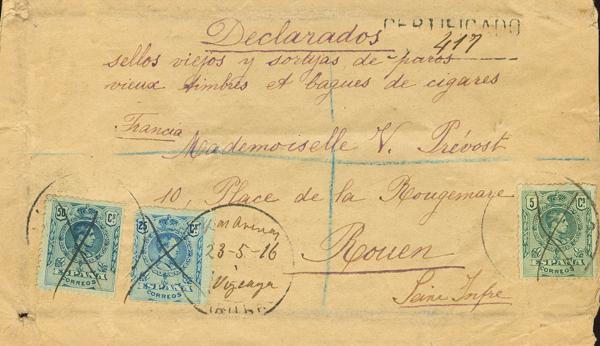 Declarados
CERTIFICADO
417
sellos viejos y sortijas de puros
vieux timbres et bagues de cigares
Francia
Mademoiselle V. Prévost
10, Place de la Rougemare
Rouen
Seine Infre
30 Cs
ESPAÑA
CORREOS
25 Cs
ESPAÑA
CORREOS
23-5-16
Vizcaya
5 Cs
ESPAÑA
CORREOS